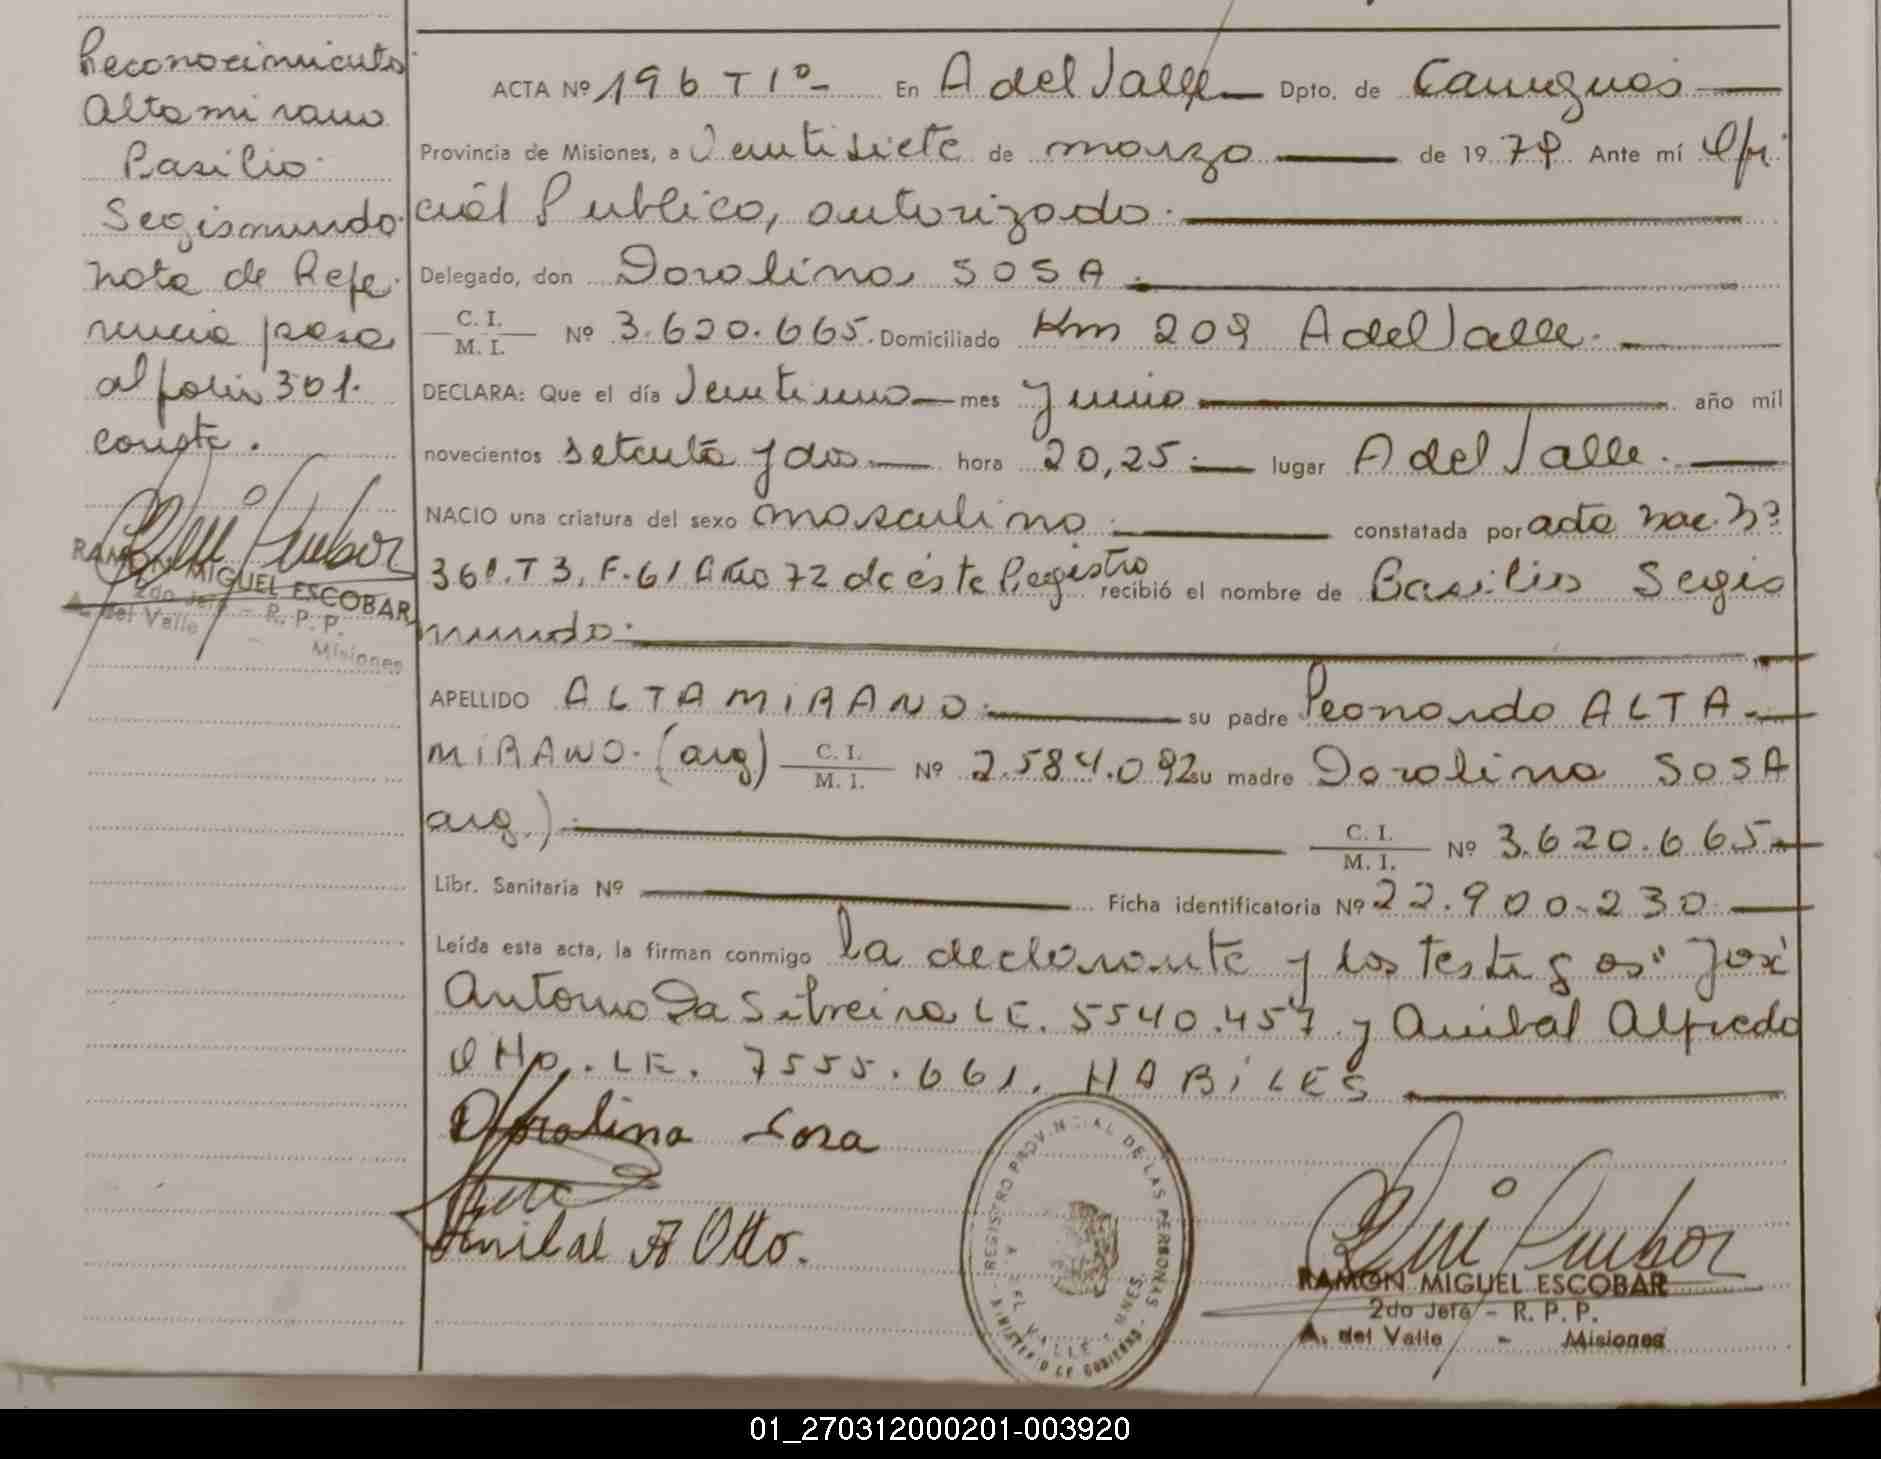 Reconocimiento
Altamirano
Basilio
Segismundo
nota de Refe
rencia pasa
al folio 301.
conste.
RAMON MIGUEL ESCOBAR
2do Jefe - R. P. P.
A. del Valle - Misiones
ACTA Nº 196 T 1º - En A del Valle Dpto. de Cainguas
Provincia de Misiones, a Ventisiete de marzo de 1979 Ante mí Ofi
cial Publico, autorizado.
Delegado, don Dorolina SOSA.
C. I.
M. I. Nº 3.620.665. Domiciliado Km 209 A del Valle.
DECLARA: Que el día Ventiuno mes Junio año mil
novecientos setenta y dos hora 20,25. lugar A del Valle.
NACIO una criatura del sexo masculino. constatada por acta nac. Nº
361. T 3. F. 61 Año 72 de éste Registro recibió el nombre de Basilio Segis
mundo.
APELLIDO ALTAMIRANO. su padre Leonardo ALTA-
MIRANO. (arg) C. I.
M. I. Nº 2.584.092 su madre Dorolina SOSA
arg.) C. I.
M. I. Nº 3.620.665
Libr. Sanitaria Nº Ficha identificatoria Nº 22.900.230
Leída esta acta, la firman conmigo la declarante y los testigos: José
Antonio Da Silveira LE. 5540.457 y Anibal Alfredo
OTTO. LE. 7555.661. HABILES
Dorolina Sosa
Anibal A Otto.
REGISTRO PROVINCIAL DE LAS PERSONAS
MINISTERIO DE GOBIERNO
RAMON MIGUEL ESCOBAR
2do Jefe - R. P. P.
A. del Valle - Misiones
01_270312000201-003920